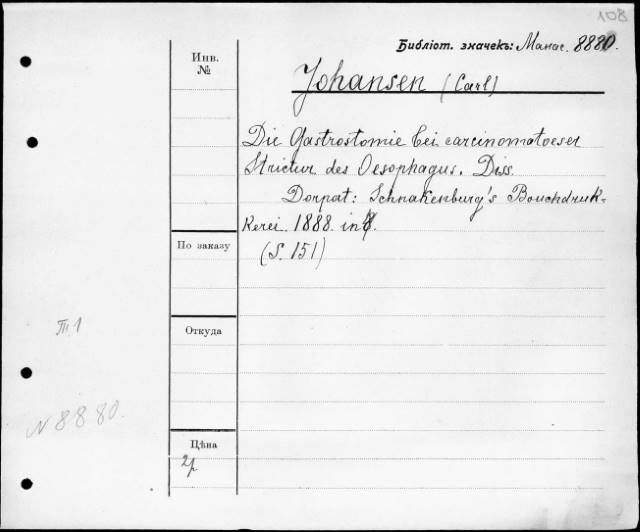 108
Библіот. значекъ: Манас. 8880.
Инв.
№
Johansen (Carl)
Die Gastrostomie bei carcinomatoeser
Strictur des Oesophagus. Diss.
Dorpat: Schnakenburg's Bouchdruk-
kerei. 1888. in 8.
(S. 151)
По заказу
Откуда
Цѣна
2р
III 1
N 8880.